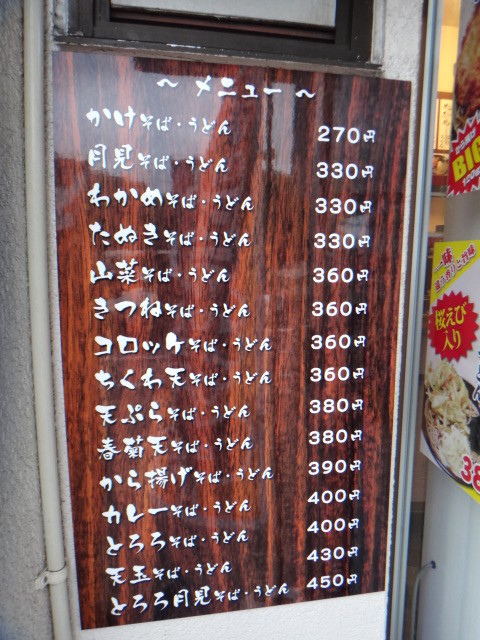 ～ メニュー ～
かけそば・うどん 270円
月見そば・うどん 330円
わかめそば・うどん 330円
たぬきそば・うどん 330円
山菜そば・うどん 360円
きつねそば・うどん 360円
コロッケそば・うどん 360円
ちくわ天そば・うどん 360円
天ぷらそば・うどん 380円
春菊天そば・うどん 380円
から揚げそば・うどん 390円
カレーそば・うどん 400円
とろろそば・うどん 400円
天玉そば・うどん 430円
とろろ月見そば・うどん 450円
BIG
桜えび
入り